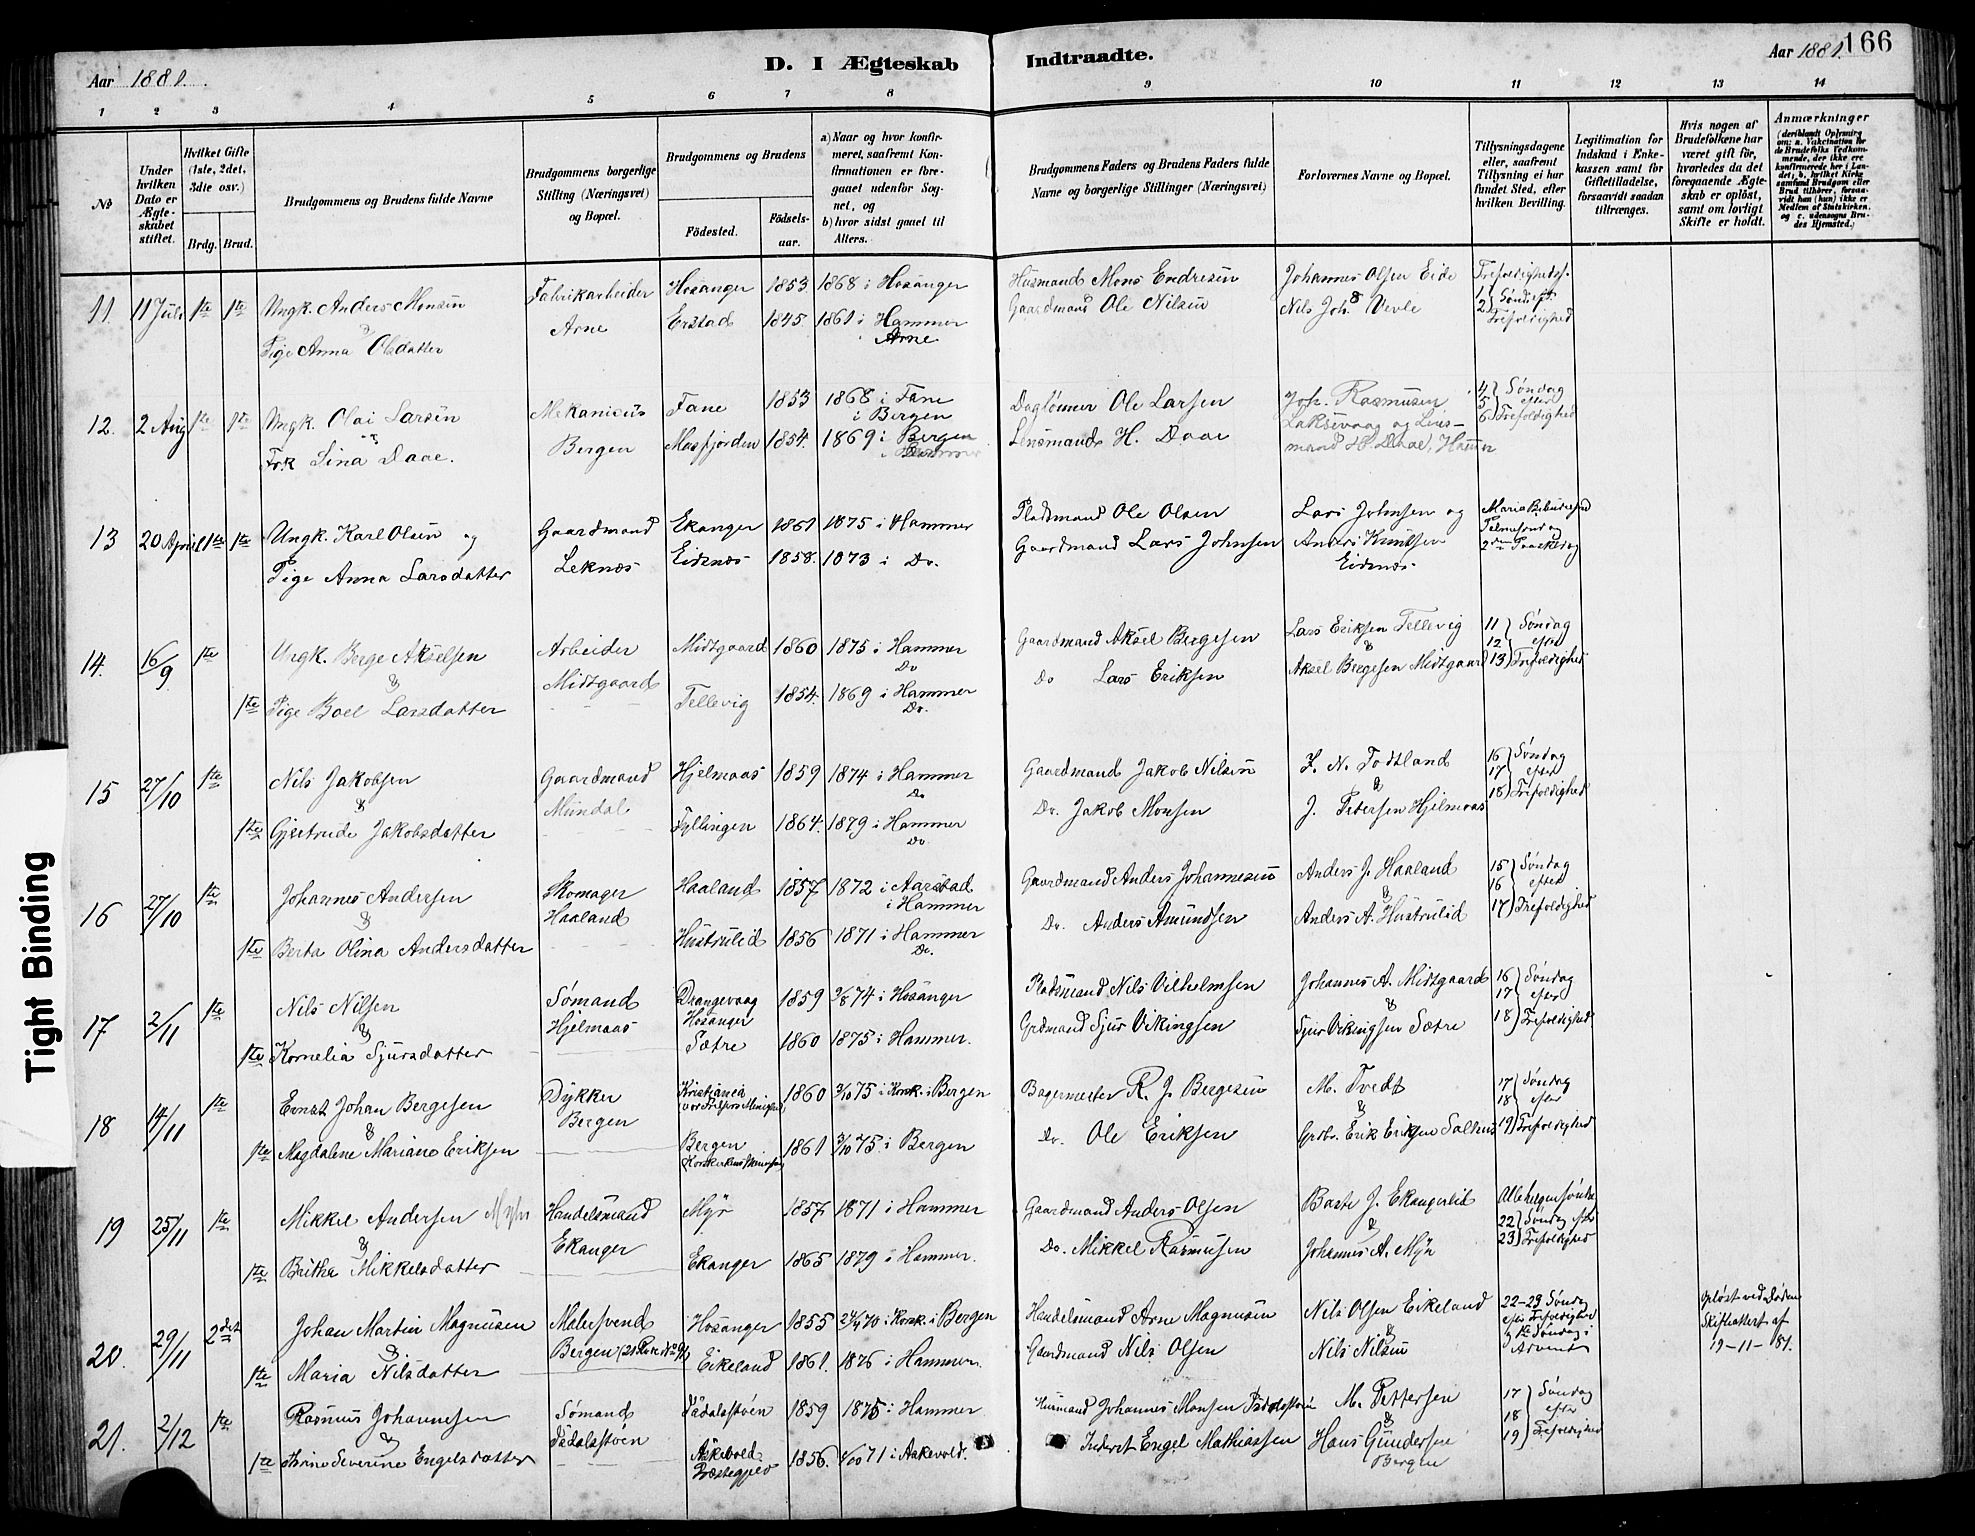 Aar 1881.
D. I Ægteskab
Indtraadte.
Aar 1881.
166
1 2 3 4 5 6 7 8 9 10 11 12 13 14
No
Under hvilken Dato er Ægteskabet stiftet.
Hvilket Gifte (1ste, 2det, 3die osv.)
Brdg. Brud.
Brudgommens og Brudens fulde Navne
Brudgommens borgerlige Stilling (Næringsvei) og Bopæl.
Brudgommens og Brudens
Fødested. Fødselsaar.
a) Naar og hvor konfirmeret, saafremt Konfirmationen er foregaaet udenfor Sognet, og
b) hvor sidst gaaet til Alters.
Brudgommens Faders og Brudens Faders fulde Navne og borgerlige Stillinger (Næringsvei)
Forlovernes Navne og Bopæl.
Tillysningsdagene eller, saafremt Tillysning ei har fundet Sted, efter hvilken Bevilling.
Legitimation for Indskud i Enkekassen samt for Giftetilladelse, forsaavidt saadan tiltrænges.
Hvis nogen af Brudefolkene har været gift før, hvorledes da det foregaaende Ægteskab er opløst, samt om lovligt Skifte er holdt.
Anmærkninger
11. 11 Juli 1ste 1ste Ungk. Anders Monsen Fabrikarbeider Hosanger 1853 1868 i Hosanger Husmand Mons Endresen Johannes Olsen Eide
& Arne Erstad 1845. 1861 i Hammer Gaardmand Ole Nilsen Nils Joh. Vevle 1 2 Søndag eft. Trefoldighed
Pige Anna Olsdatter Arne
12. 2 Aug 1ste 1ste Ungk. Olai Larsen Mekanicus Fane 1853 1868 i Fane Daglønner Ole Larsen Joh. Rasmusen 4 5 6 Søndag efter Trefoldighed
og i Bergen Laksevaag og Lensmand H. Daae, Hammer
Frk Lina Daae. Bergen Masfjorden 1854. 1869 i Bergen Lensmand H. Daae
13 20 April 1ste 1ste Ungk. Karl Olsen og Gaardmand Ekanger 1861 1875 i Hammer Pladsmand Ole Olsen Lars Johnsen og
Pige Anna Larsdatter Leknes Eidsnes 1858. 1873 i Do. Gaardmand Lars Johnsen Anders Knutsen Eidsnes 2den Paaskedag
14. 16/9 1ste Ungk. Berge Akselsen Arbeider Midtgaard 1860 1875 i Hammer Do Gaardmand Aksel Bergesen Lars Eriksen Tellevig 11 12 13 Søndag efter Trefoldighed
&
1ste Pige Boel Larsdatter Midtgaard Tellevig 1854. 1869 i Hammer Do. Do Lars Eriksen Aksel Bergesen Midtgaard
15 27/10 1ste Nils Jakobsen Gaardmand Hjelmaas 1859 1874 i Hammer Do Gaardmand Jakob Nilsen N. Todtland 16 17 18 Søndag efter Trefoldighed
&
1ste Gjertrude Jakobsdatter Mundal Fyllingen 1864. 1879 i Hammer Do. Do. Jakob Monsen J. Petersen Hjelmaas
16 27/10 1ste Johannes Andersen Skomager Haaland 1857 1872 i Aarstad i Hammer Gaardmand Anders Johannesen Anders J. Haaland 15 16 17 Søndag efter Trefoldighed
&
1ste Berta Olina Andersdatter Haaland Hustrulid 1856 1871 i Hammer Do. Do. Anders Amundsen Anders A. Hustrulid
17 2/11 1ste Nils Nilsen Sømand Drangevaag Hosanger 1859 2/8 74 i Hosanger Pladsmand Nils Vilhelmsen Johannes A. Midtgaard 16 17 18 Søndag efter Trefoldighed
&
1ste Kornelia Sjursdatter Hjelmaas Sætre 1860 1875 i Hammer. Grdmand Sjur Vikingsen Sjur Vikingsen Sætre
18 14/11 1ste Ernst Johan Bergesen Dykker Kristiania 1860 3/10 75 i Korsk. i Bergen Bagermester R. J. Bergesen M. Tvedt 17 18 19 Søndag efter Trefoldighed
&
1ste Magdalene Mariane Eriksen Bergen Bergen 1861 3/10 75. i Bergen Do. Ole Eriksen Grbr. Erik Eriksen Salhus
19 25/11 1ste Mikkel Andersen Myhr Handelsmand Myr 1857 1871 i Hammer Gaardmand Anders Olsen Baste J. Ekangerlid Allehelgensønda
&
1ste Brithe Mikkelsdatter Ekanger Ekanger 1865 1879 i Hammer. Do. Mikkel Rasmusen Johannes A. Myr 22 23 Søndag efter Trefoldighed
20. 29/11 2det Johan Martin Magnusen Malersvend Hosanger 1855 24/4 70 i Korsk. i Bergen Handelsmand Arne Magnusen Nils Olsen Eikeland 22-23 Søndag efter Trefoldighed & 1ste Søndag i Advent Opløst ved Døden Skifteattest af 19-11-81.
&
1ste Maria Nilsdatter Bergen Eikeland 1861. 1876 i Hammer. Gaardmand Nils Olsen Nils Nilsen
21. 2/12 1ste Rasmus Johannesen Sømand Tadalsstøen 1859 1875 i Hammer Husmand Johannes Monsen Tadalsstøen M. Pettersen 17 18 19 Søndag efter Trefoldighed
&
1ste Severine Engelsdatter Tadalsstøen Askevold Præstegjeld 1856. 71 i Askevold. Inderst Engel Mathiassen Hans Gundersen Bergen
Tight Binding